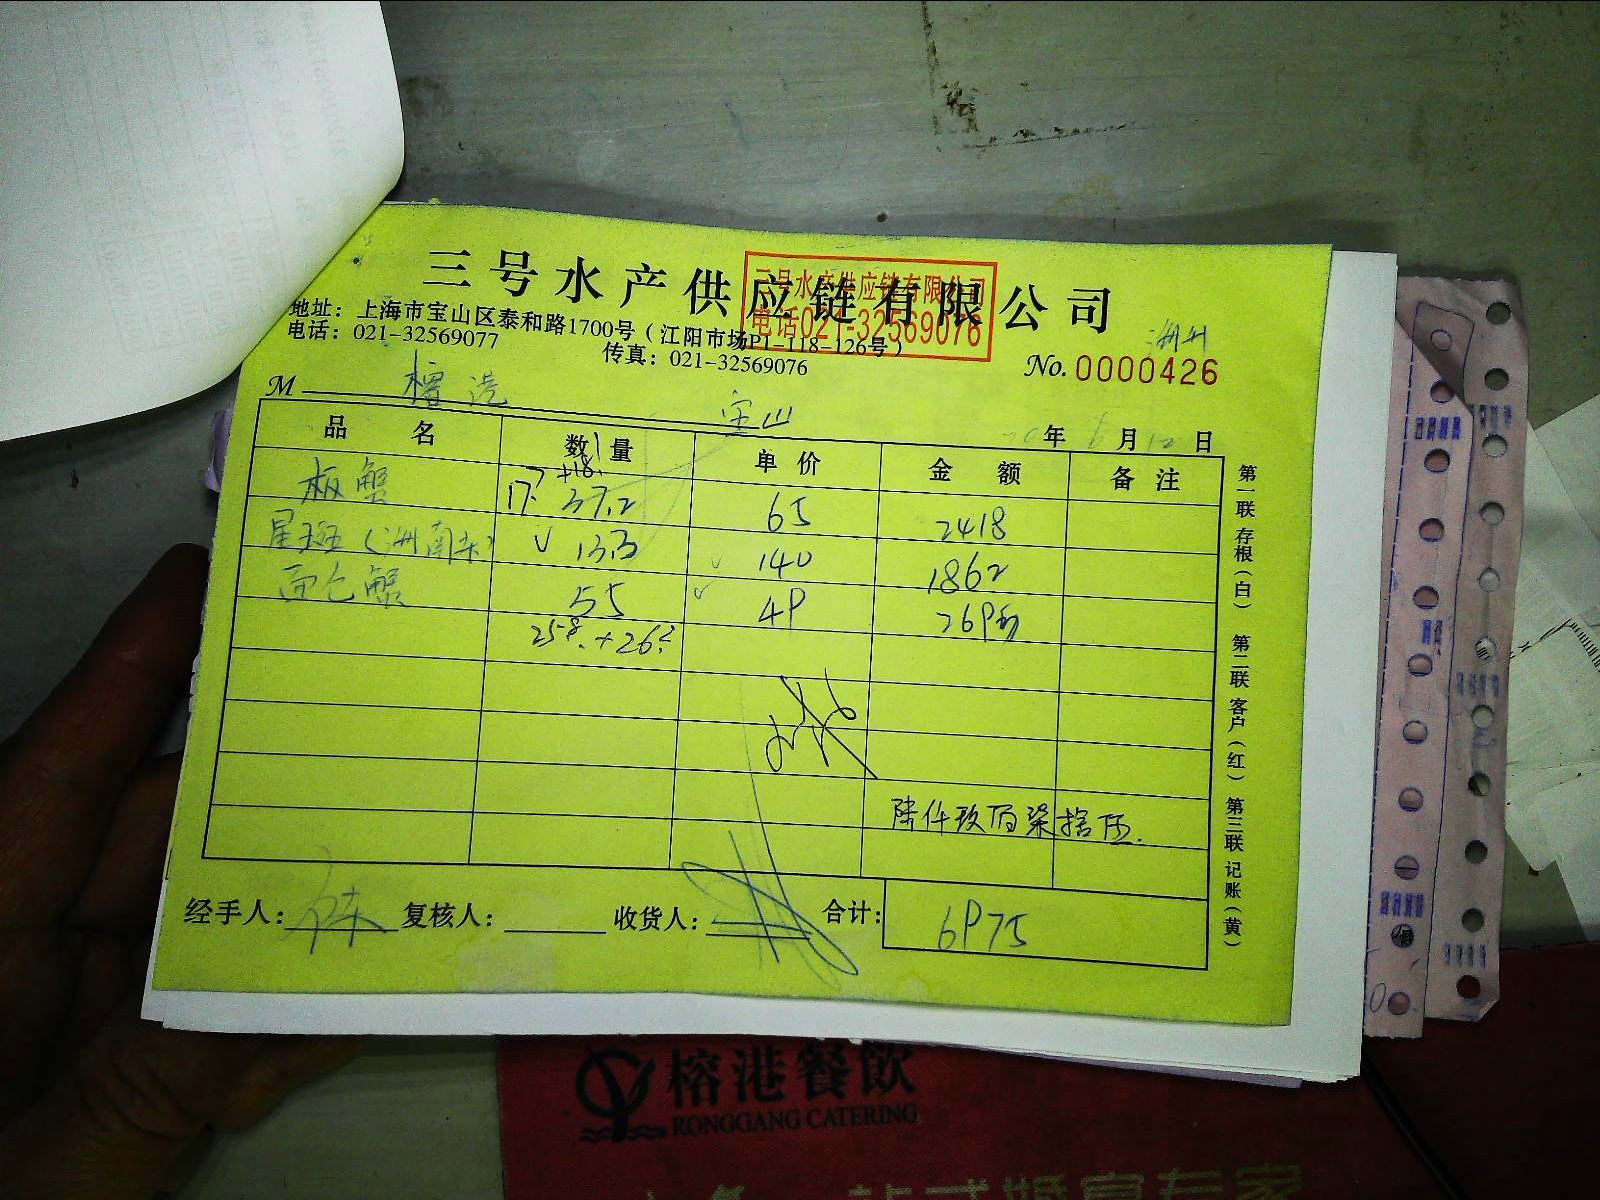 三号水产供应链有限公司
三号水产供应链有限公司
电话021-32569076
地址：上海市宝山区泰和路1700号（江阳市场P1-118-126号）
电话：021-32569077
传真：021-32569076
No. 0000426
M 榕港
宝山
20年6月12日
品名 数量 单价 金额 备注
板蟹 37.2 65 2418
星斑 13.3 140 1862
面包蟹 55 49 2695
陆仟玖佰柒拾伍.
经手人： 复核人： 收货人： 合计： 6975
第一联 存根（白） 第二联 客户（红） 第三联 记账（黄）
榕港餐飲
RONGGANG CATERING